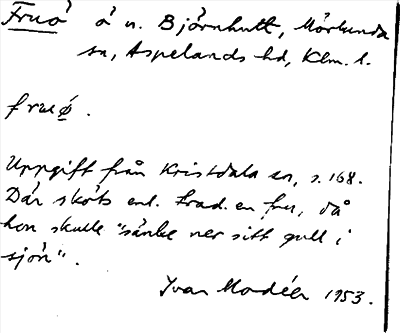 Fruö ö n. Björnhult, Mörlunda
sn, Aspelands hd, Klm. l.
fruø̄.
Uppgift från Kristdala sn, s. 168.
Där sköts enl. trad. en fru, då
hon skulle "sänke ner sitt gull i
sjön".
Ivar Modéer 1953.